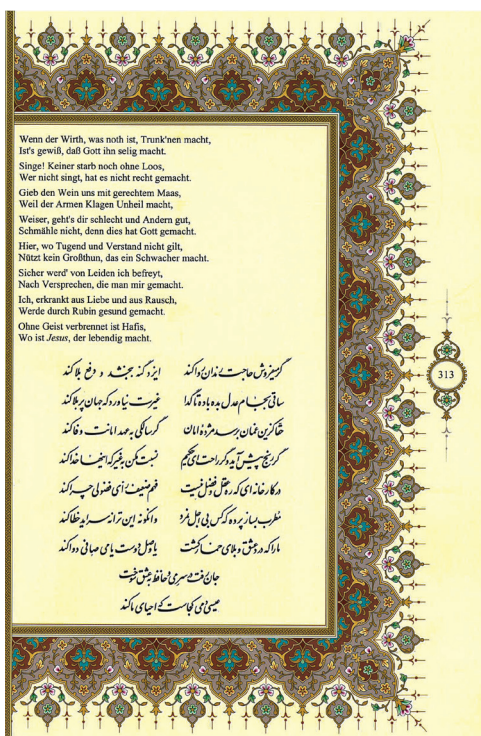 Wenn der Wirth, was noth ist, Trunk'nen macht,
Ist's gewiß, daß Gott ihn selig macht.
Singe! Keiner starb noch ohne Loos,
Wer nicht singt, hat es nicht recht gemacht.
Gieb den Wein uns mit gerechtem Maas,
Weil der Armen Klagen Unheil macht,
Weiser, geht's dir schlecht und Andern gut,
Schmähle nicht, denn dies hat Gott gemacht.
Hier, wo Tugend und Verstand nicht gilt,
Nützt kein Großthun, das ein Schwacher macht.
Sicher werd' von Leiden ich befreyt,
Nach Versprechen, die man mir gemacht.
Ich, erkrankt aus Liebe und aus Rausch,
Werde durch Rubin gesund gemacht.
Ohne Geist verbrennet ist Hafis,
Wo ist Jesus, der lebendig macht.
گر میفروش حاجت رندان روا کند ایزد گنه ببخشد و دفع بلا کند
ساقی بجام عدل بده باده تا گدا غیرت نیاورد که جهان پر بلا کند
حقا کزین غمان برسد مژده امان گر سالکی به عهد امانت وفا کند
گر رنج پیش آید و گر راحت ای حکیم نسبت مکن به غیر که اینها خدا کند
در کارخانه ای که ره عقل و فضل نیست فهم ضعیف رأی فضولی چرا کند
مطرب بساز پرده که کس بی اجل نمرد وانکو نه این ترانه سراید خطا کند
ما را که درد عشق و بلای خمار کشت یا وصل دوست یا می صافی دوا کند
جان رفت در سر می و حافظ به عشق سوخت
عیسی دمی کجاست که احیای ما کند
313